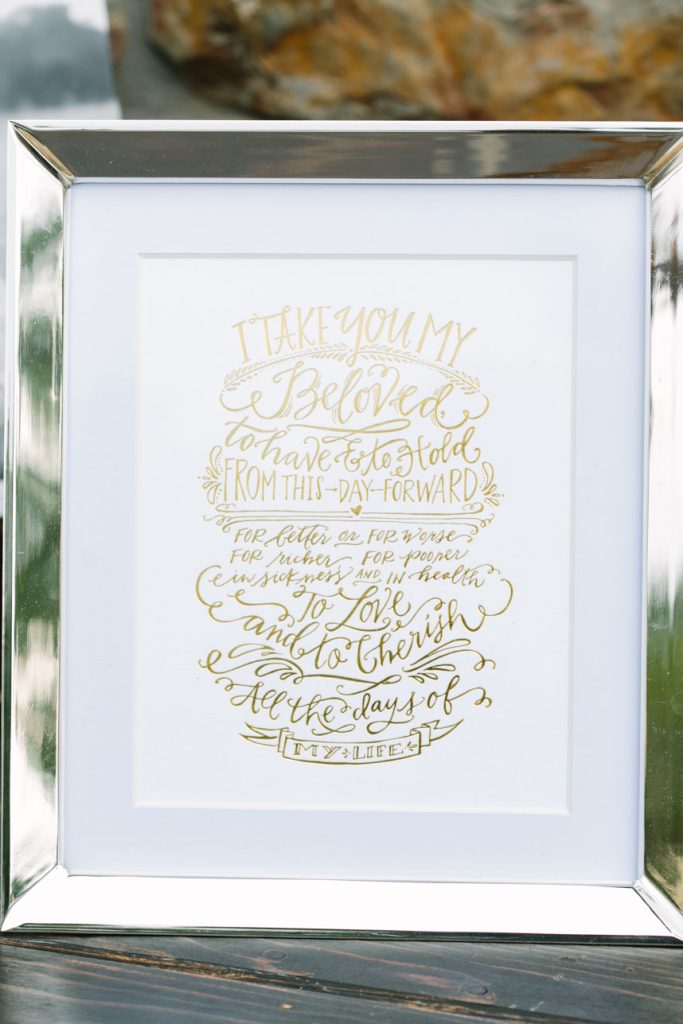 I TAKE YOU MY
Beloved,
to have & to Hold
FROM THIS DAY FORWARD
FOR better or FOR worse
FOR richer FOR poorer
in sickness AND IN health
To Love
and to Cherish
All the days of
MY LIFE